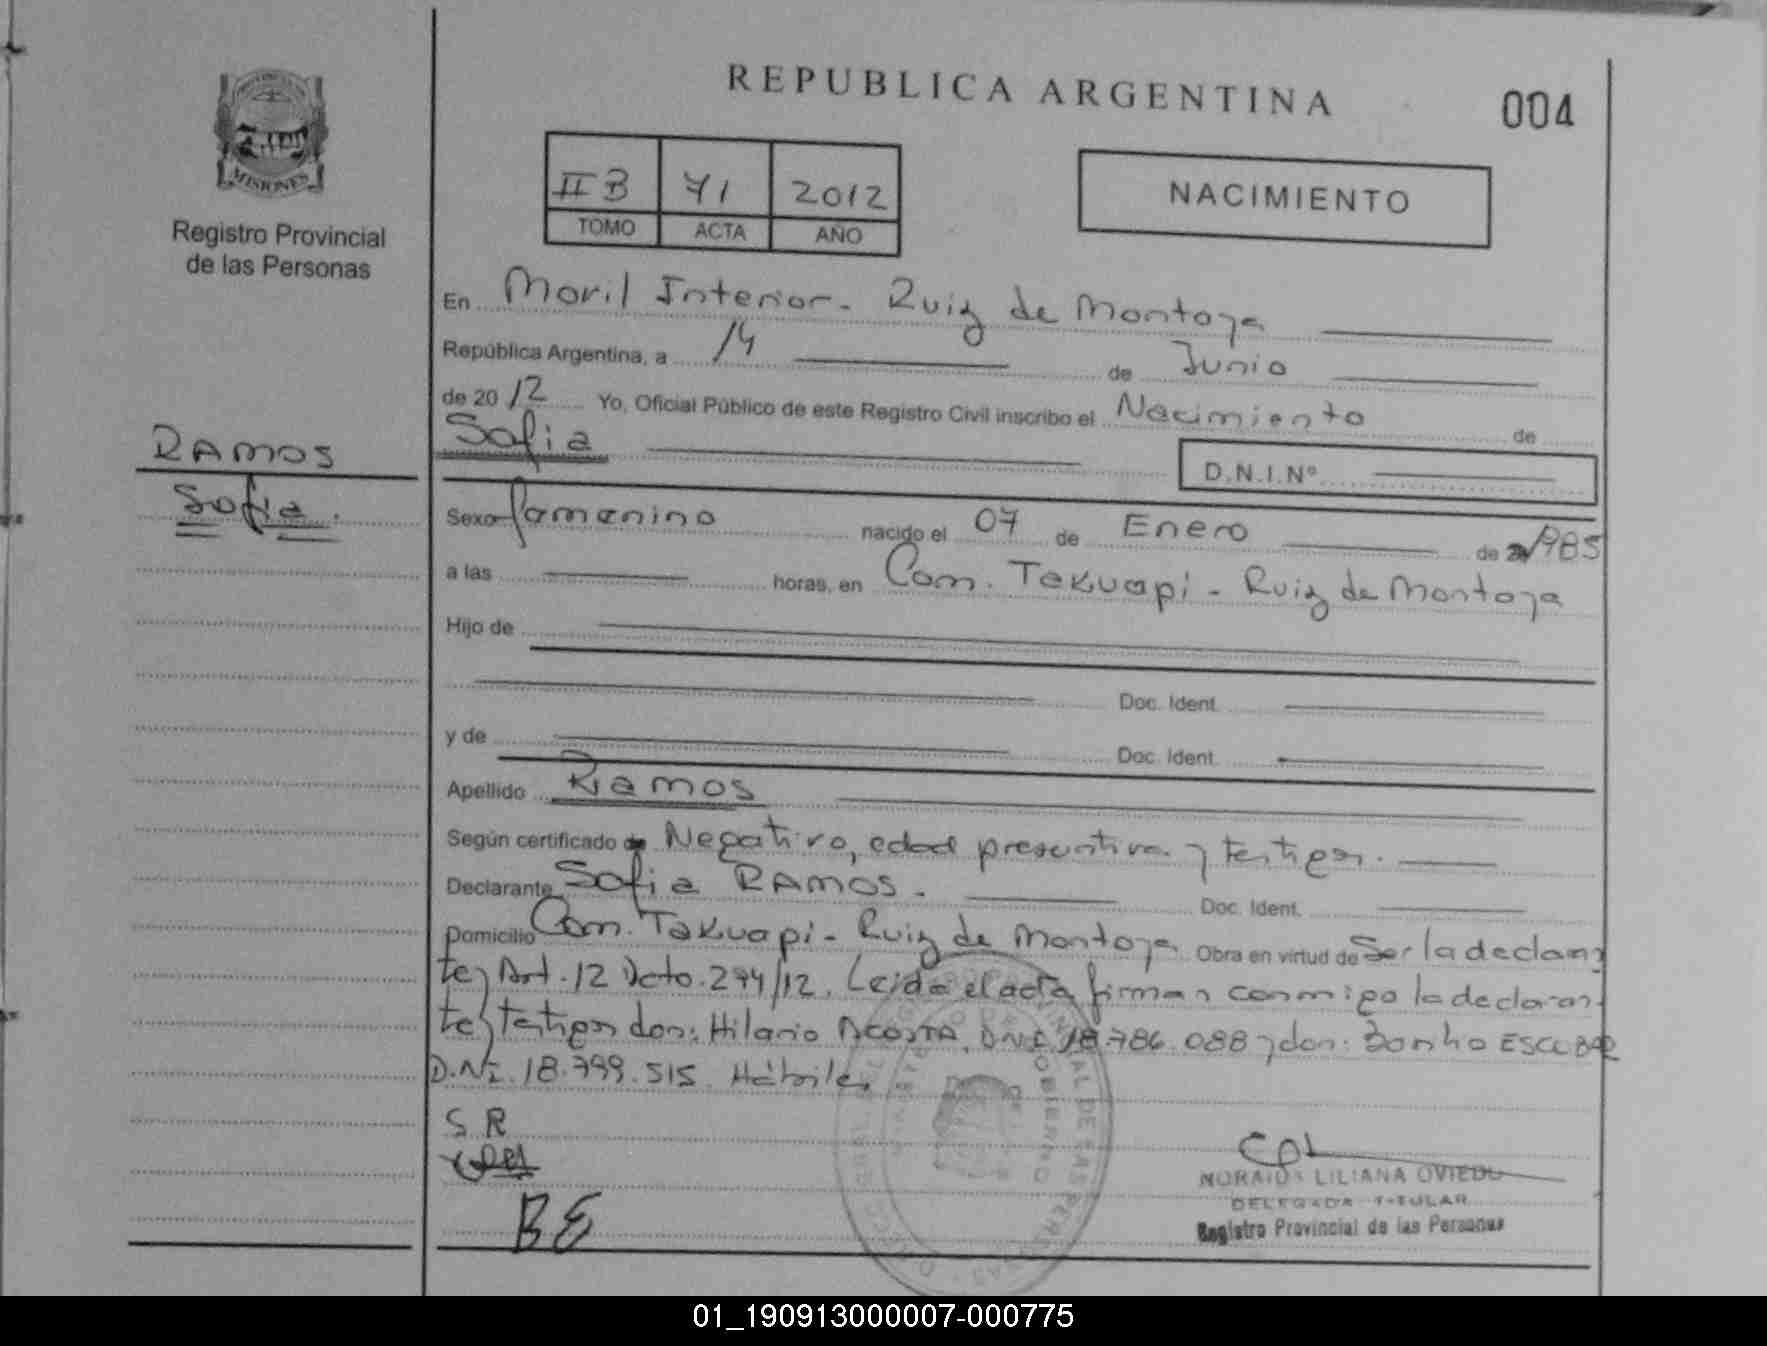 REPUBLICA ARGENTINA
004
MISIONES
Registro Provincial
de las Personas
II B 71 2012
TOMO ACTA AÑO
NACIMIENTO
En Movil Interior - Ruiz de Montoya
República Argentina, a 14 de Junio
de 2012 Yo, Oficial Público de este Registro Civil inscribo el Nacimiento de
Sofia
D.N.I.Nº
RAMOS
Sofia.
Sexo femenino nacido el 07 de Enero de 1985
a las horas, en Com. Takuapi - Ruiz de Montoya
Hijo de
Doc. Ident.
y de Doc. Ident.
Apellido Ramos
Según certificado de Negativo, edad presuntiva y testigos.
Declarante Sofia RAMOS. Doc. Ident.
Domicilio Com. Takuapi - Ruiz de Montoya Obra en virtud de Ser la declaran
te y Art. 12 Dcto. 294/12. Leida el acta firman conmigo la declaran
te y testigos don: Hilario ACOSTA, DNI 18.786.088 y don: Bonho ESCOBAR
D.NI. 18.799.515 Hábiles
S R
BE
NORAIDA LILIANA OVIEDO
DELEGADA TITULAR
Registro Provincial de las Personas
01_190913000007-000775